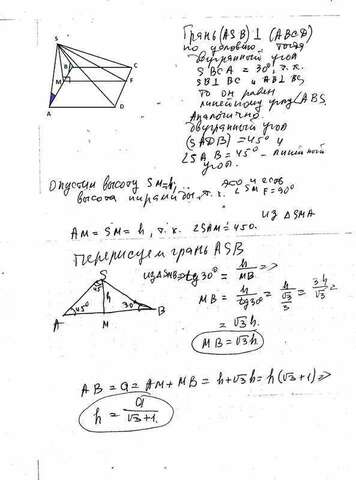 S
B
C
M
F
A
D
Грань (ASB) ⊥ (ABCD)
по условию, тогда
двугранный угол
SBCA = 30°, т.к.
SB ⊥ BC и AB ⊥ BC,
то он равен
линейному углу ∠ABS.
Аналогично
двугранный угол
(SADB) = 45° и
∠SAB = 45° - линейный
угол.
Опустим высоту SM=h,
высота пирамиды, т.к.
∠SMF=90°
из ΔSMA
AM = SM = h, т.к. ∠SAM=450.
Перерисуем грань ASB
S
45°
45°
h
30°
A
M
B
из ΔSMB => tg30° = h/MB =>
MB = h/tg30° = h/(√3/3) = 3h/√3 =
= √3h.
MB = √3h
AB = a = AM + MB = h+√3h = h(√3+1) =>
h = a/(√3+1).